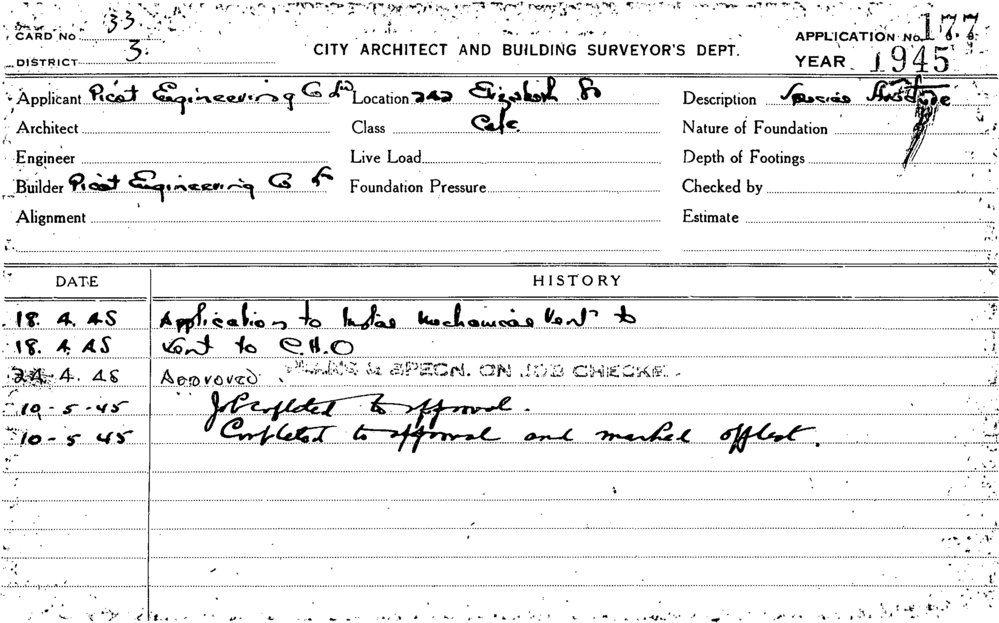 CARD NO 33.
DISTRICT 3.
CITY ARCHITECT AND BUILDING SURVEYOR'S DEPT.
APPLICATION No. 177
YEAR 1945
Applicant Picot Engineering Co Ld Location 242 Elizabeth St Description Special
Architect Class Cafe Nature of Foundation
Engineer Live Load Depth of Footings
Builder Picot Engineering Co Foundation Pressure Checked by
Alignment Estimate
DATE HISTORY
18. 4. 45 Application to Instal Mechanical Vent to
18. 4. 45 Sent to C.H.O
24. 4. 45 Approved PLANS & SPECN. ON JOB CHECKED.
10-5-45 Job completed to approval.
10-5 45 Completed to approval and marked off list.